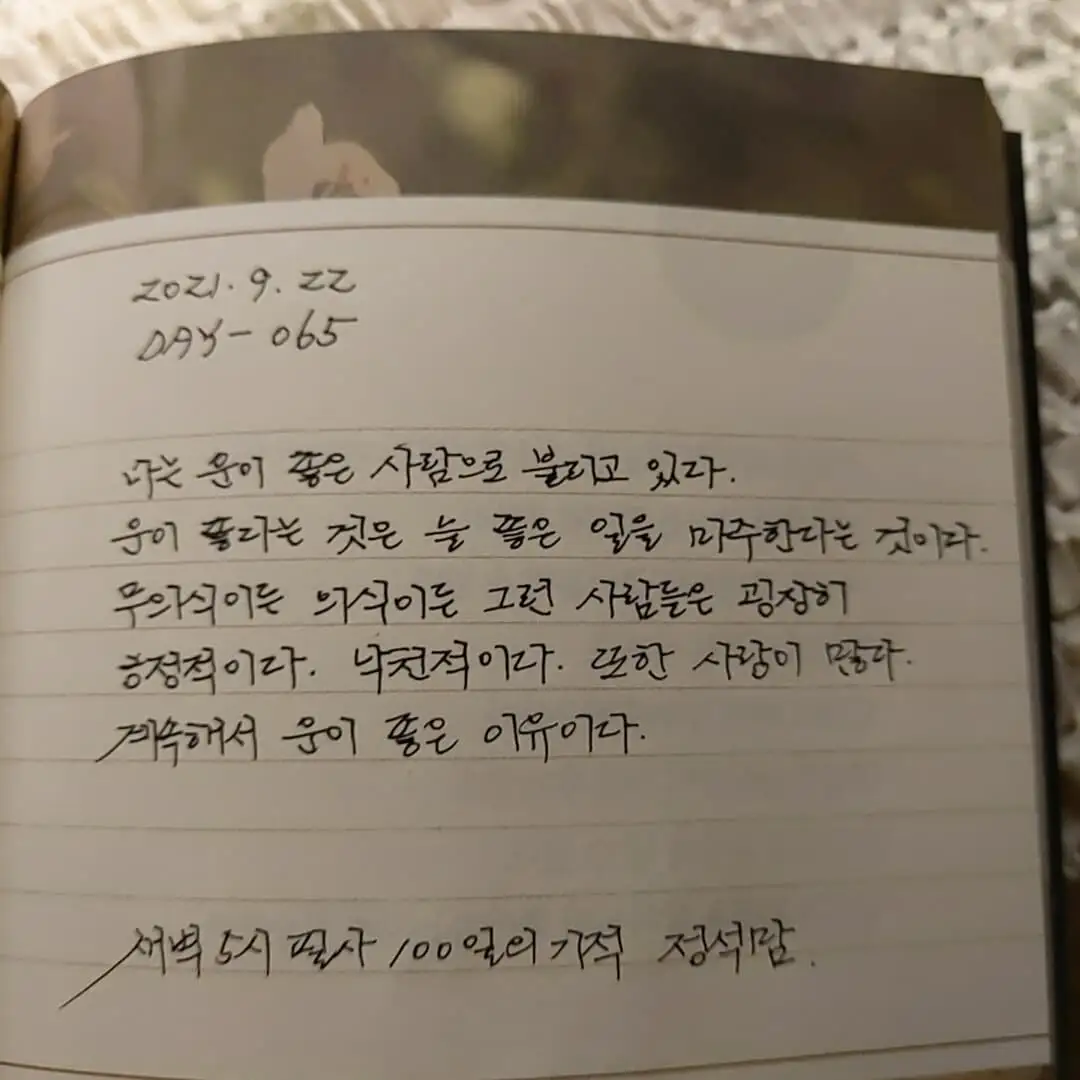 2021. 9. 22
DAY - 065
나는 운이 좋은 사람으로 불리고 있다.
운이 좋다는 것은 늘 좋은 일을 마주한다는 것이다.
무의식이든 의식이든 그런 사람들은 굉장히
긍정적이다. 낙천적이다. 또한 사랑이 많다.
계속해서 운이 좋은 이유이다.
새벽 5시 필사 100일의 기적 정석맘.